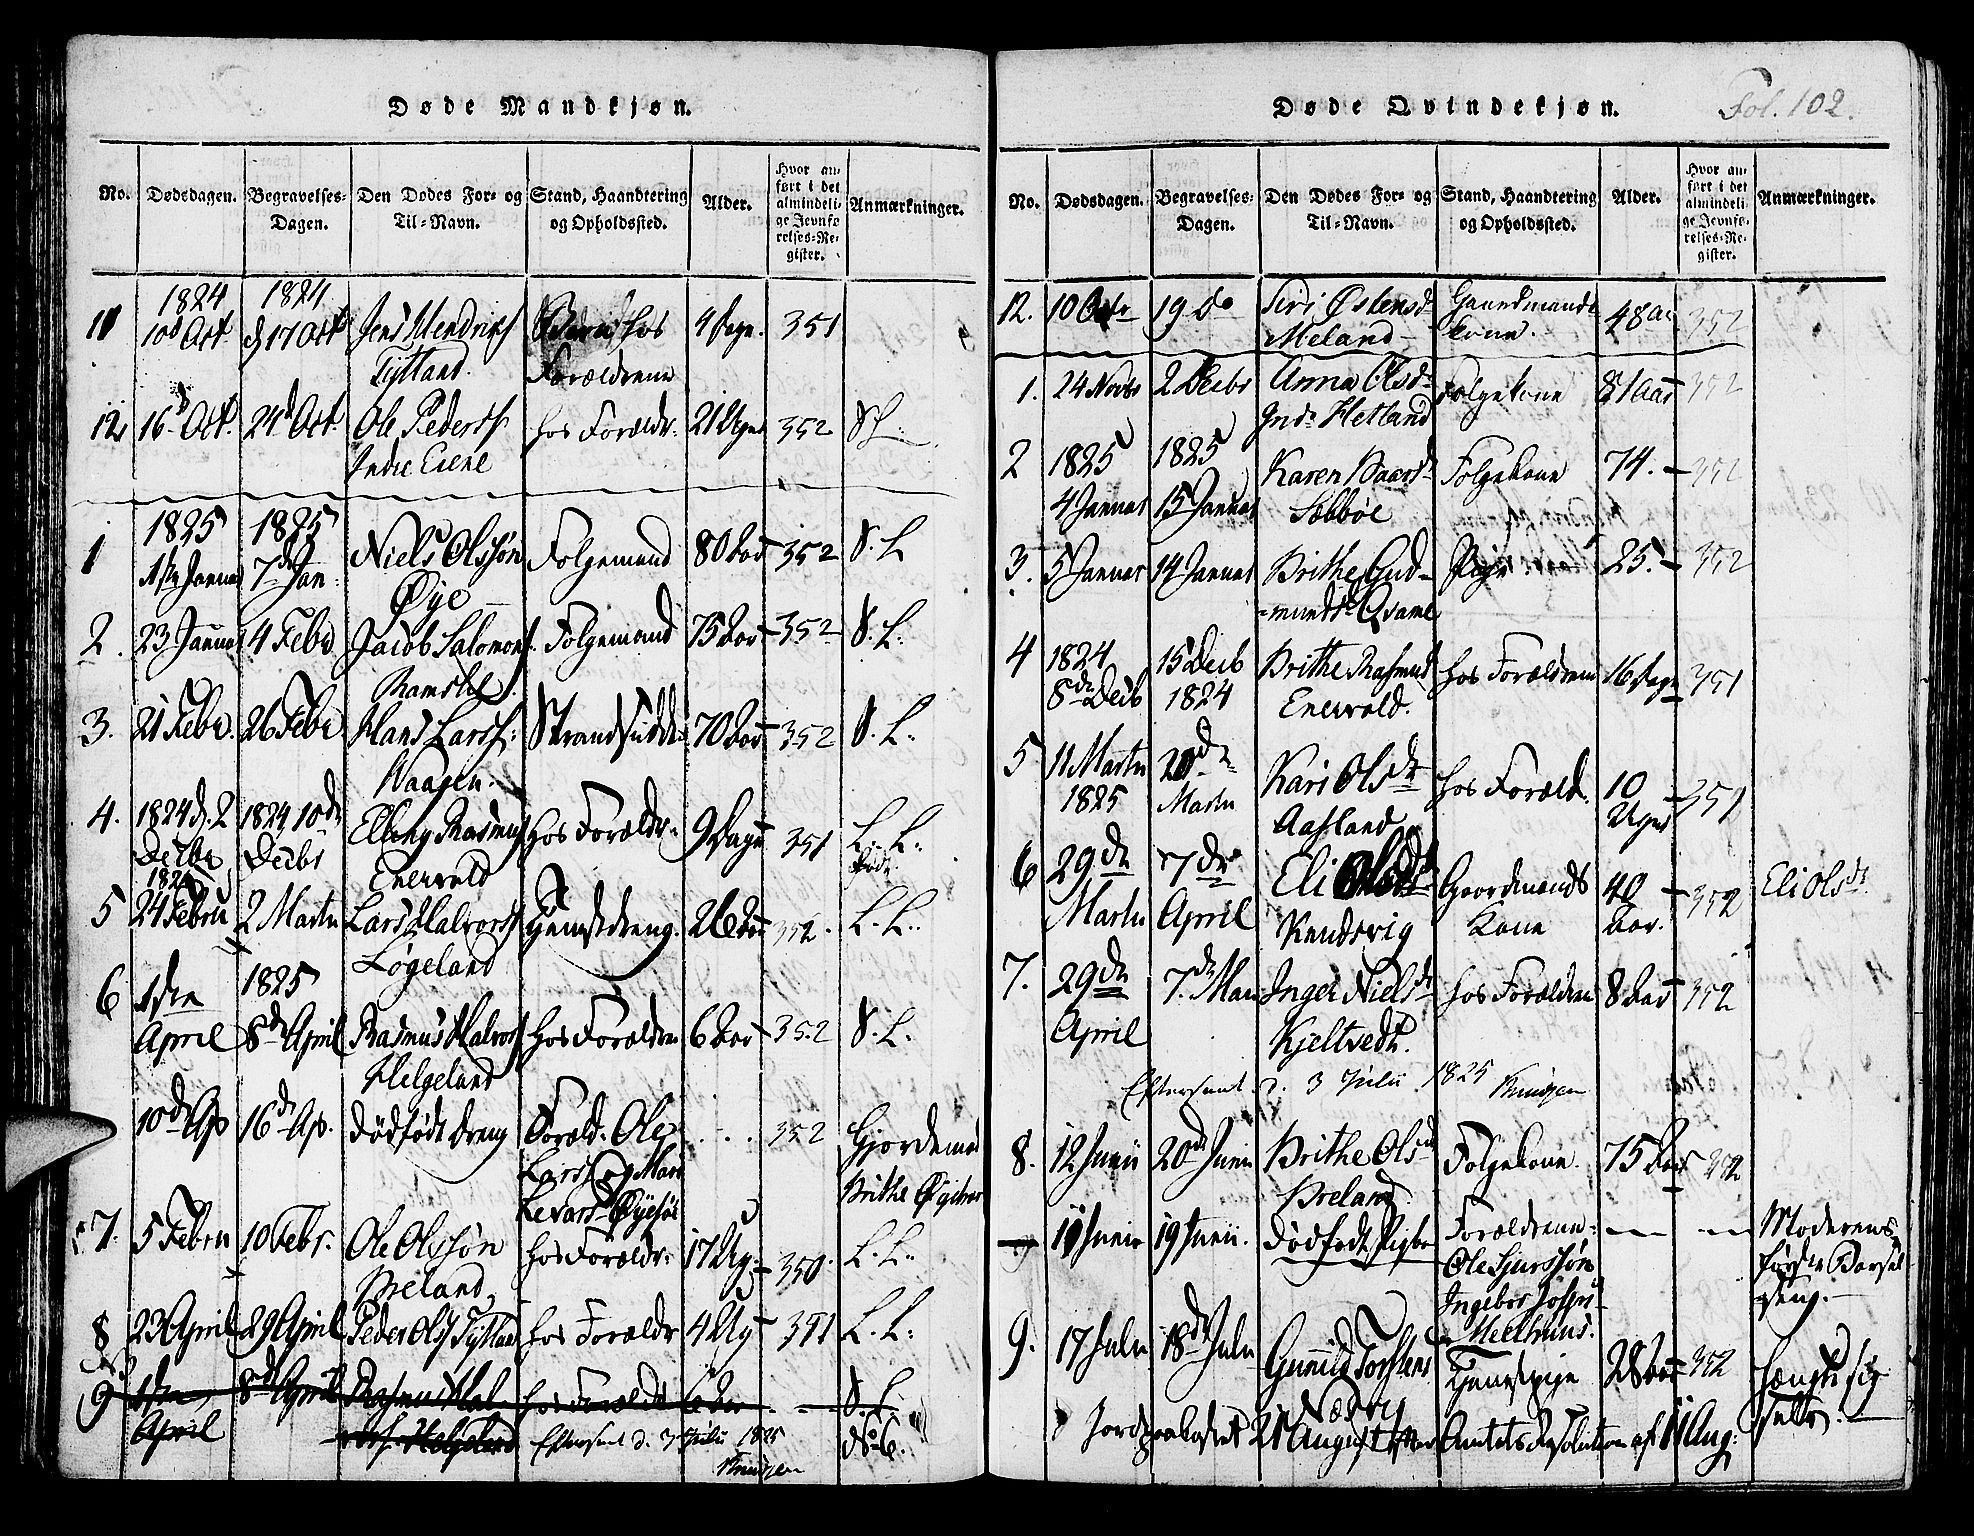 Døde Mandkjøn.
No.
Dødsdagen.
Begravelses-
Dagen.
Den Dødes For- og
Til-Navn.
Stand, Haandtering
og Opholdssted.
Alder.
Hvor an-
ført i det
almindeli-
ge Jevnfø-
relses-Re-
gister.
Anmærkninger.
11 1824 10d Oct 1824 d 17 Oct Jens Hendrichs
Tytland
Barn hos
Forældrene
4 Dage. 351
12 16d Oct. 24d Oct Ole Peders
Indre Eiene
hos Forældr. 21 Uger 352 S. L.
1 1825
1ste Januar
1825
7de Jan:
Niels Olssøn
Øye
Folgemand 80 Aar 352 S. L
2. 23 Januar 4 Febr Jacob Salomons
Ramslie
Folgemand 75 Aar 352 S. L.
3. 21 Febr. 26 Febr Hans Larss:
Vaagen.
Strandsidder 70 Aar 352 S. L.
4. 1824 d. 2
Decbr
1824 10de
Decbr
Elling Rasmus
Enervold
hos Forældr: 9 Dage 351 L. L.
5 24 Febru 2 Martii Lars Halvors
Løgeland
Tjenestdreng. 26 Aar 352. L. L.
6 1ste
April
1825
8de April
Rasmus Halvors
Helgeland
hos Forældre 6 Aar 352 S. L.
10de Ap 16de Ap. dødfødt dreng Foræld. Ole
Larss og Mari
Levards Øyesøe
352 Gjordemod
Brithe Øgi
7. 5 Febru 10 Febr. Ole Olssøn
Meland
hos Forældr: 17 Ug: 350. L. L.
8 23 April 29 April Peder Ols Tytland hos Forældr 4 Ug 351 L. L.
9 1ste
April
8de April Rasmus Hal-
vors. Helgeland
hos Foræld 6 Aar S. L
No 6.
Efterseet d. 3 Julii 1825
Døde Qvindekjøn.
Fol. 102.
No.
Dødsdagen.
Begravelses-
Dagen.
Den Dødes For- og
Til-Navn.
Stand, Haandtering
og Opholdssted.
Alder.
Hvor an-
ført i det
almindeli-
ge Jevnfø-
relses-Re-
gister.
Anmærkninger.
12. 10 Octr 19 do Siri Østensd
Meland
Gaardmands
kone. 48 Aar 352
1. 24 Novbr 2 Decbr Anna Olsd
Indr Hetland
Folgekone 81 Aar 352
2 1825
4 Januar
1825
15 Januar
Karen Baards
Søbbøe
Folgekone 74. 352
3. 5 Januar 14 Januar Brithe Gud-
munds Qvame
Pige 25. 352
4 1824
8de Decb
15 Decb
1824
Brithe Rasmusd
Enervold.
hos Forældrene 16 Dage 351
5 11 Martii
1825
20de
Martii
Kari Olsdt
Aasland
hos Foræld. 10
Uger
351
6 29de
Martii
7de
April
Eli Olsdt
Kendsvig
Gaardmands
Kone
40
Aar.
352 Eli Olsdt.
7. 29de
April
7de Maii Inger Nielsdt
Kjeltvedt.
hos Forældrene 8 Aar 352
Efterseet d. 3 Julii 1825
8. 12 Junii 20de Junii Brithe Olsd
Breland
Folgekone. 75 Aar 352
11 Junii 19 Junii. dødfødt Pigeb Forældrene:
Ole Sjurssøn
Ingebor
Meelhuus.
Moderens
første Barsel
seng.
9. 17 Julii 18de Julii Gunnild Torstens
Nedre
Tjenestpige 28 Aar 352 hængte sig
selv.
Jordpaakastet 21 August efter Amtets Resolution af 11 Aug: